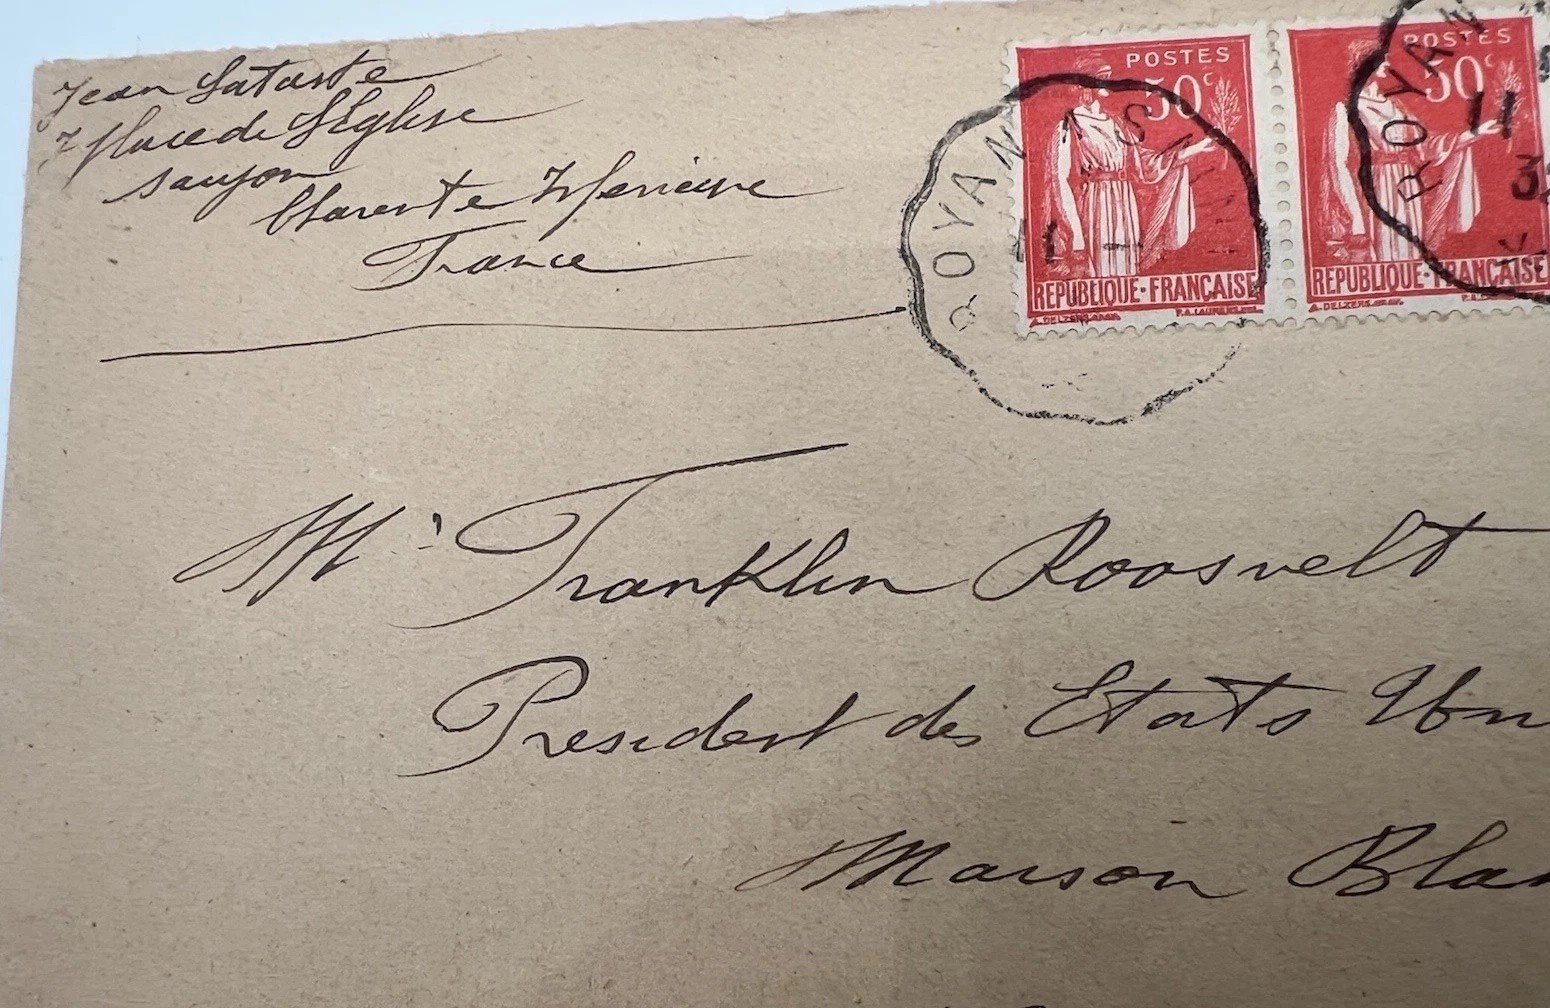 Jean Lataste
7 place de L'Eglise
Saujon
Charente Inferieure
France
POSTES
50c
REPUBLIQUE·FRANÇAISE
POSTES
50c
REPUBLIQUE·FRANÇAISE
A. DELZERS
ROYAN
ROYAN
11
Mr Franklin Roosvelt
President des Etats Un
Maison Blan